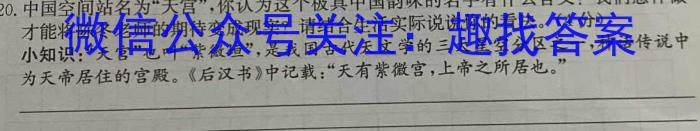 20. 中国空间站名为“天宫”,你认为这个极具中国韵味的名字有什么含义?我们怎样做
才能将 的期待变成现实?请结合生活实际说说你的看法。
微信公众号关注：趣找答案
小知识:“天宫”也叫“紫微宫”,是我国古代天文学的三 传说中
为天帝居住的宫殿。《后汉书》中记载:“天有紫微宫,上帝之所居也。”